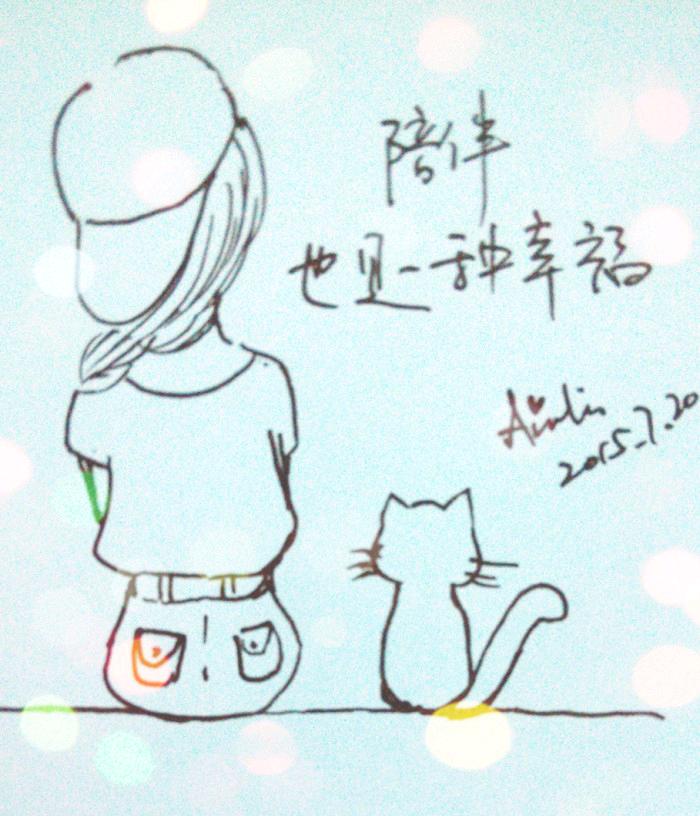 陪伴
也是一种幸福
Ainlin
2015.7.20